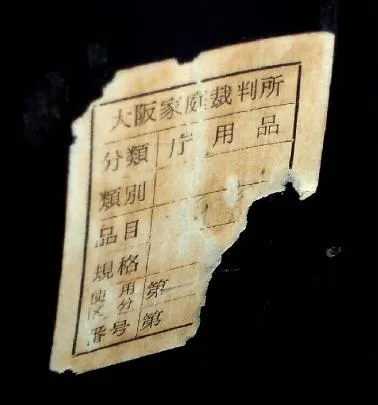 大阪家庭裁判所
分類 庁用品
類別
品目
規格
使用区分 第
番号 第